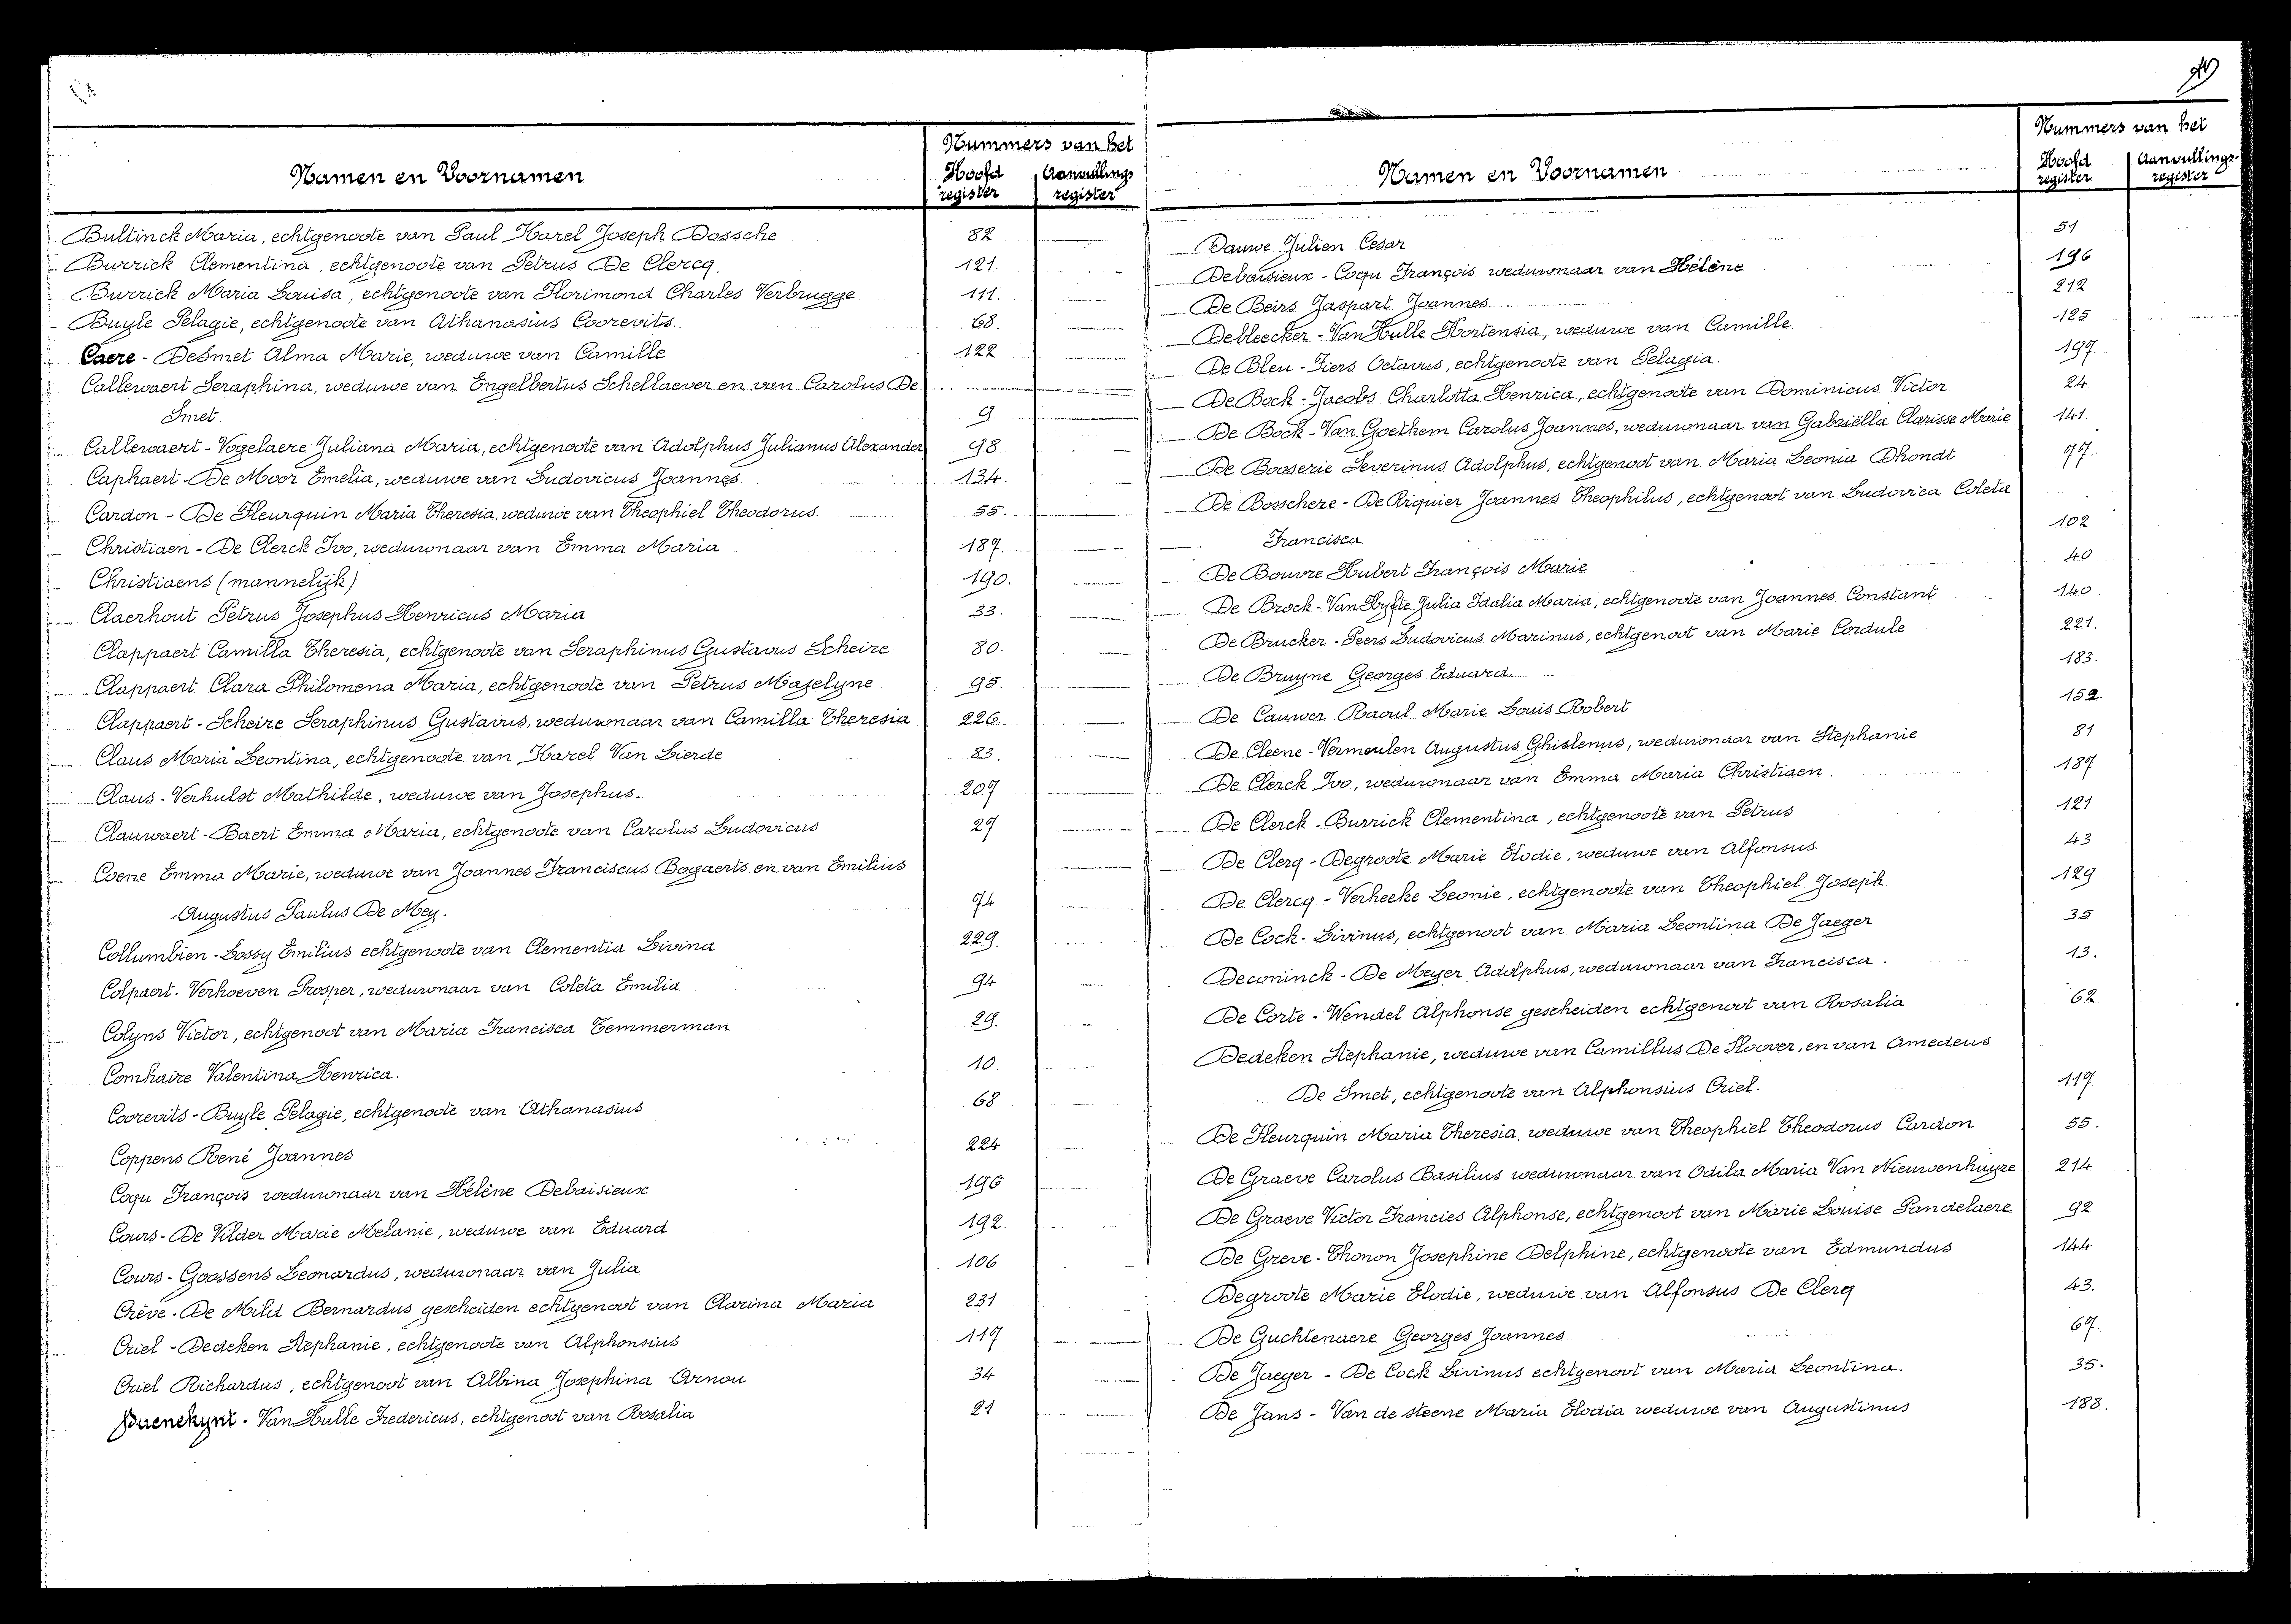 Nummers van het
Namen en Voornamen
Hoofd register
Aanvullings register
Bultinck Maria, echtgenoote van Paul Karel Joseph Dossche 82
Burrick Clementina, echtgenoote van Petrus De Clercq. 121.
Burrick Maria Louisa, echtgenoote van Florimond Charles Verbrugge 111.
Buyle Pelagie, echtgenoote van Athanasius Coorevits. 68.
Caere - DeSmet Alma Marie, weduwe van Camille 122
Callewaert Seraphina, weduwe van Engelbertus Schellaever en van Carolus De
Smet 9.
Callewaert - Vogelaere Juliana Maria, echtgenoote van Adolphus Julianus Alexander 98
Caphaert - De Moor Emelia, weduwe van Ludovicus Joannes. 134.
Cardon - De Fleurquin Maria Theresia, weduwe van Theophiel Theodorus. 55.
Christiaen - De Clerck Ivo, weduwnaar van Emma Maria 187.
Christiaens (mannelijk) 190.
Claerhout Petrus Josephus Henricus Maria 33.
Clappaert Camilla Theresia, echtgenoote van Seraphinus Gustavus Scheire 80.
Clappaert Clara Philomena Maria, echtgenoote van Petrus Mazelyne 95.
Clappaert - Scheire Seraphinus Gustavus, weduwnaar van Camilla Theresia 226.
Claus Maria Leontina, echtgenoote van Karel Van Lierde 83.
Claus - Verhulst Mathilde, weduwe van Josephus. 207
Clauwaert - Baert Emma Maria, echtgenoote van Carolus Ludovicus 27
Coene Emma Marie, weduwe van Joannes Franciscus Bogaerts en van Emilius
Augustus Paulus De Mey. 74
Collumbien - Lossy Emilius echtgenoote van Clementia Livina 229.
Colpaert - Verhoeven Prosper, weduwnaar van Coleta Emilia 94
Colyns Victor, echtgenoot van Maria Francisca Temmerman 29.
Comhaire Valentina Henrica. 10.
Coorevits - Buyle Pelagie, echtgenoote van Athanasius 68
Coppens René Joannes 224
Coqu François weduwnaar van Hélène Debaisieux 196
Cours - De Vilder Marie Melanie, weduwe van Eduard 192.
Cours - Goossens Leonardus, weduwnaar van Julia 106
Crève - De Mild Bernardus gescheiden echtgenoot van Clarina Maria 231
Criel - Dedeken Stephanie, echtgenoote van Alphonsius 117
Criel Richardus, echtgenoot van Albina Josephina Arnou 34
Daenekynt - VanHulle Fredericus, echtgenoot van Rosalia 21
Nummers van het
Namen en Voornamen
Hoofd register
Aanvullings- register
Dauwe Julien Cesar 51
Debaisieux - Coqu François weduwnaar van Hélène 196
De Beirs Jaspart Joannes 212
Debleecker - VanHulle Hortensia, weduwe van Camille 125
De Bleu - Fiers Octavus, echtgenoote van Pelagia. 197
De Bock - Jacobs Charlotta Henrica, echtgenoote van Dominicus Victor 24
De Bock - Van Goethem Carolus Joannes, weduwnaar van Gabriëlla Clarisse Marie 141.
De Booserie Severinus Adolphus, echtgenoot van Maria Leonia Dhondt 77.
De Bosschere - De Riquier Joannes Theophilus, echtgenoot van Ludovica Coleta
Francisca 102
De Bouvre Hubert François Marie 40
De Brock - VanHyfte Julia Idalia Maria, echtgenoote van Joannes Constant 140
De Brucker - Peers Ludovicus Marinus, echtgenoot van Marie Cordule 221.
De Bruyne Georges Eduard 183.
De Cauwer Raoul Marie Louis Robert 152.
De Cleene - Vermeulen Augustus Ghislenus, weduwnaar van Stephanie 81
De Clerck Ivo, weduwnaar van Emma Maria Christiaen 187
De Clerck - Burrick Clementina, echtgenoote van Petrus 121
De Clerq - Degroote Marie Elodie, weduwe van Alfonsus 43
De Clercq - Verheeke Leonie, echtgenoote van Theophiel Joseph 129
De Cock - Livinus, echtgenoot van Maria Leontina De Jaeger 35
Deconinck - De Meyer Adolphus, weduwnaar van Francisca. 13.
De Corte - Wendel Alphonse gescheiden echtgenoot van Rosalia 62
Dedeken Stephanie, weduwe van Camillus De Kloover, en van Amedeus
De Smet, echtgenoote van Alphonsius Criel. 117
De Fleurquin Maria Theresia, weduwe van Theophiel Theodorus Cardon 55.
De Graeve Carolus Basilius weduwnaar van Odila Maria Van Nieuwenhuyze 214
De Graeve Victor Francies Alphonse, echtgenoot van Marie Louise Pandelaere 92
De Greve - Thonon Josephine Delphine, echtgenoote van Edmundus 144
Degroote Marie Elodie, weduwe van Alfonsus De Clerq 43.
De Guchtenaere Georges Joannes 67.
De Jaeger - De Cock Livinus echtgenoot van Maria Leontina. 35.
De Jans - Van de steene Maria Elodia weduwe van Augustinus 188.